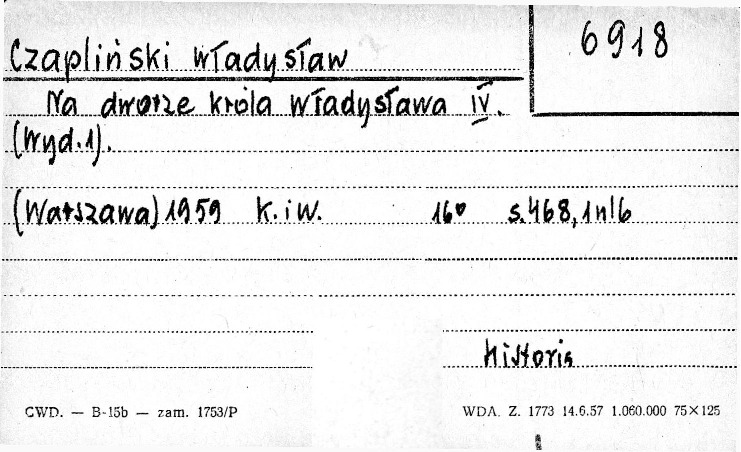 6918
Czapliński Władysław
Na dworze króla Władysława IV.
(Wyd.1).
(Warszawa) 1959 K.iW. 16° s.468, 1nlb
historia
CWD. — B-15b — zam. 1753/P
WDA. Z. 1773 14.6.57 1.060.000 75×125